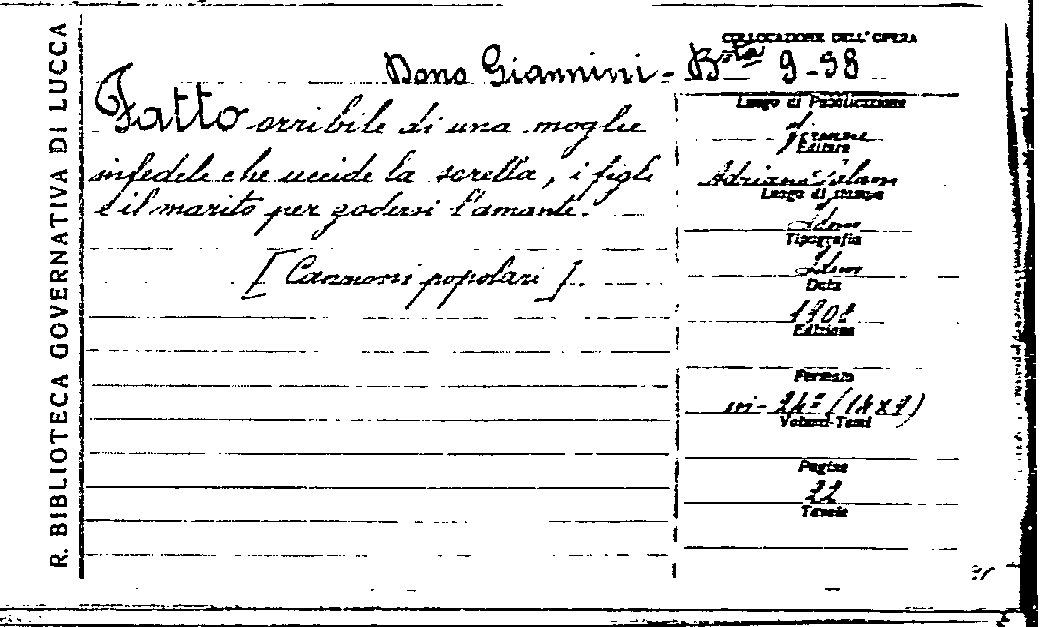 R. BIBLIOTECA GOVERNATIVA DI LUCCA
COLLOCAZIONE DELL'OPERA
Dono Giannini - B.ta 9-98
Fatto orribile di una moglie
infedele che uccide la sorella, i figli
e il marito per godersi l'amante.
[Canzoni popolari]
Luogo di Pubblicazione
Firenze
Editore
Adriano Salani
Luogo di stampa
Idem
Tipografia
Idem
Data
1902
Edizione
Formato
in-24° (14x9)
Volumi-Tomi
Pagine
22
Tavole